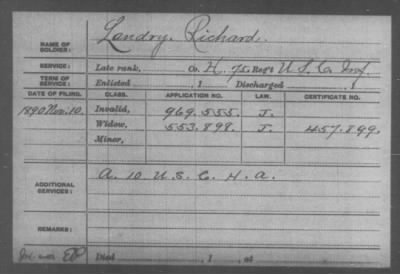 NAME OF SOLDIER: Landry, Richard.
SERVICE: Late rank, Co. H, 75. Reg't U. S. C. Inf.
TERM OF SERVICE: Enlisted 1 Discharged 1
DATE OF FILING. CLASS. APPLICATION NO. LAW. CERTIFICATE NO.
1890 Nov. 10. Invalid, 969.555. J.
Widow, 553.898. J. 457.899.
Minor,
ADDITIONAL SERVICES: A. 10 U. S. C. H. A.
REMARKS:
Died , 1 , at